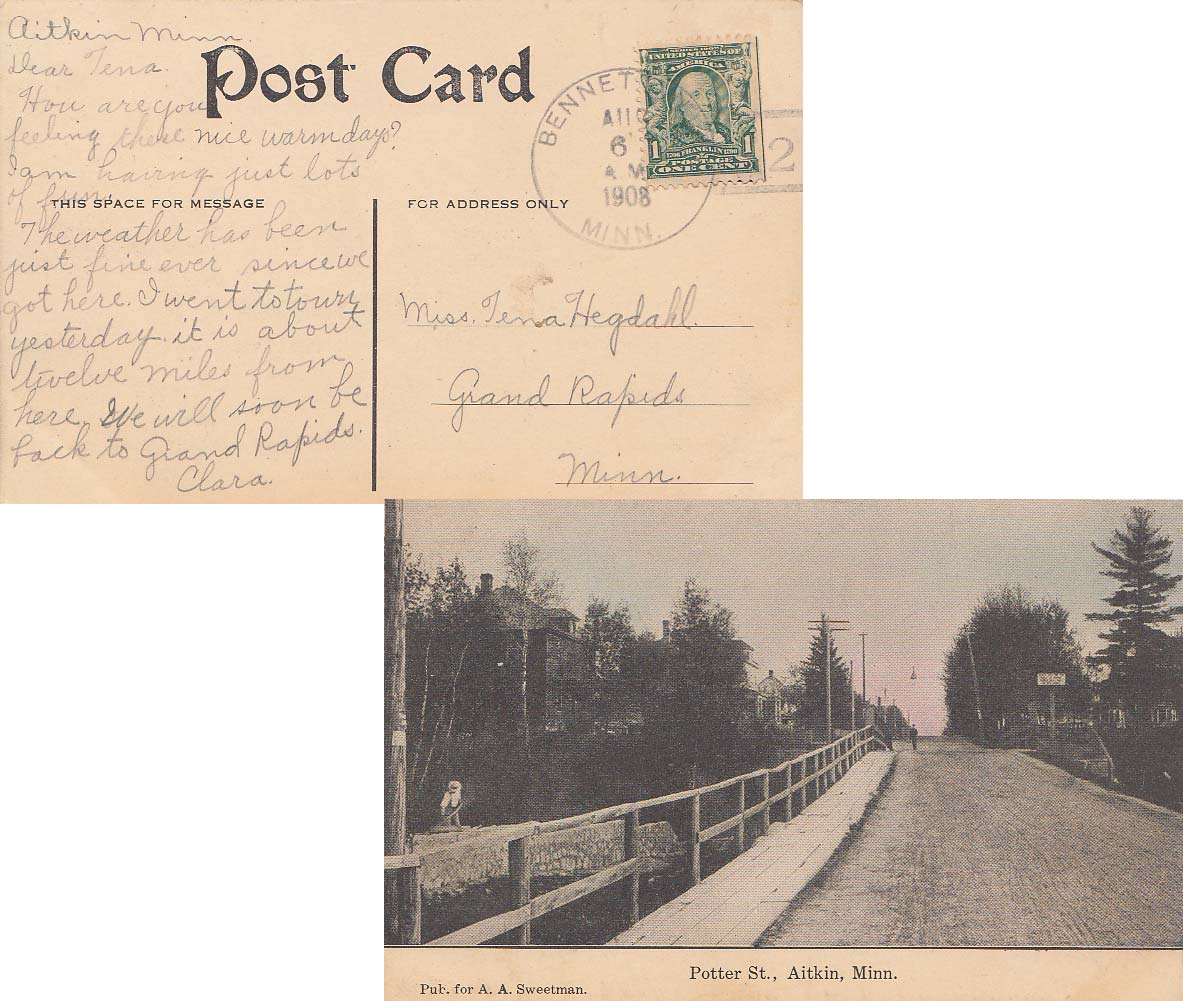 Aitkin Minn.
Dear Tena.
How are you
feeling these nice warm days?
I am having just lots
of fun.
The weather has been
just fine ever since we
got here. I went to town
yesterday. it is about
twelve miles from
here. We will soon be
back to Grand Rapids.
Clara.
Post Card
THIS SPACE FOR MESSAGE
FOR ADDRESS ONLY
BENNET
AUG
6
A.M
1908
MINN.
2
SERIES 1902
UNITED STATES OF
AMERICA
1 1
1706 FRANKLIN 1790
POSTAGE
ONE CENT
Miss. Tena Hegdahl.
Grand Rapids
Minn.
Potter St., Aitkin, Minn.
Pub. for A. A. Sweetman.